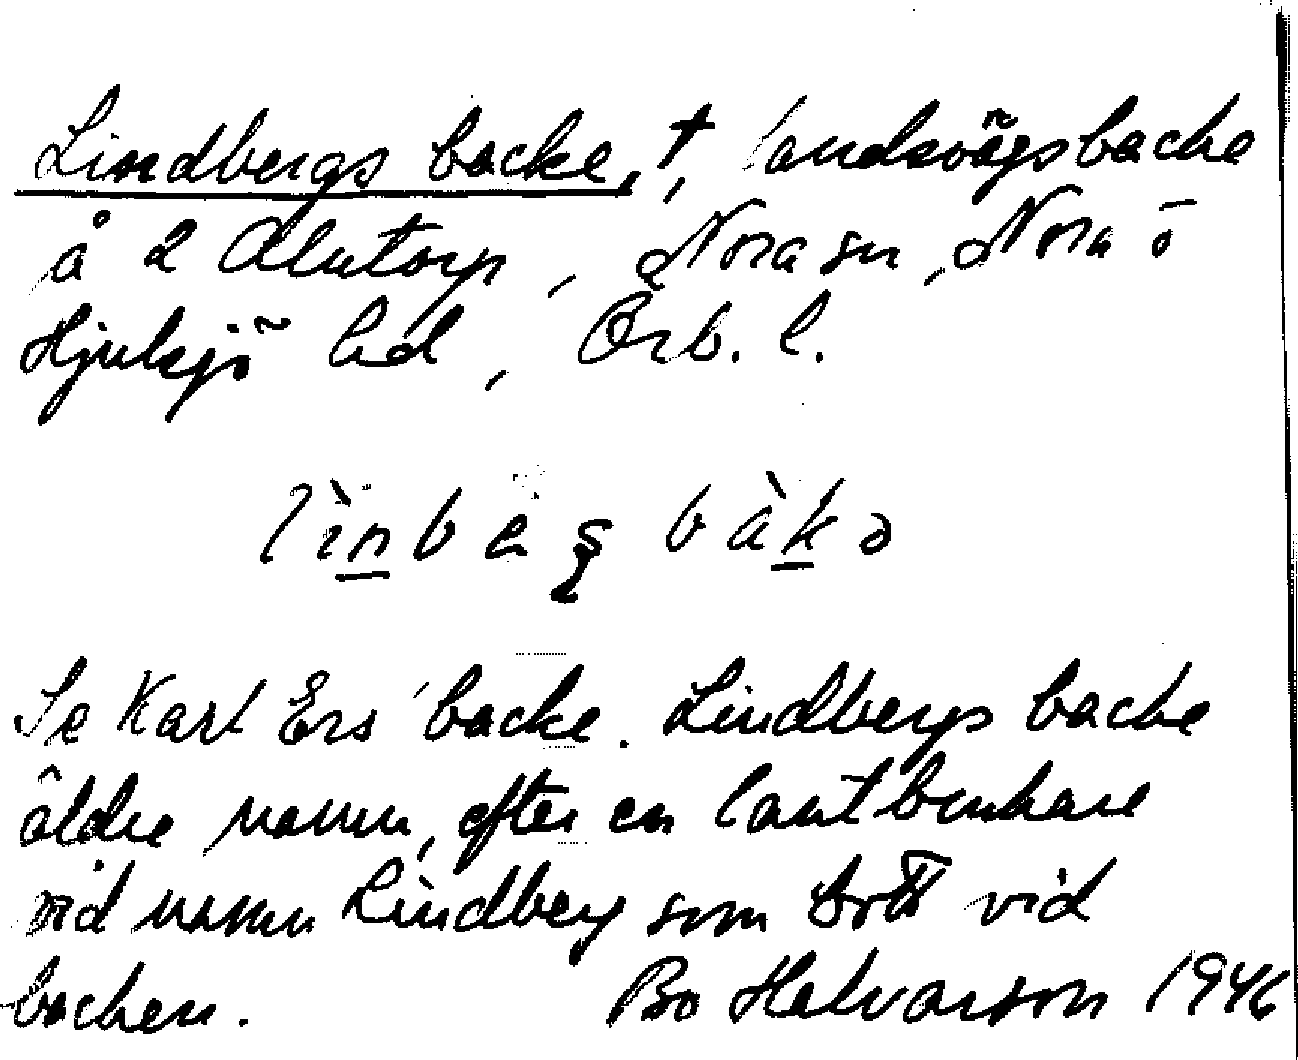 Lindbergs backe, †, landsvägsbacke
å 2 Alntorp, Nora sn, Nora o
Hjulsjö bd, Örb. l.
lìnbeʂ bàkə
Se Karl Ers' backe. Lindbergs backe
äldre namn, efter en lantbrukare
vid namn Lindberg som bott vid
backen. Bo Halvarson 1946